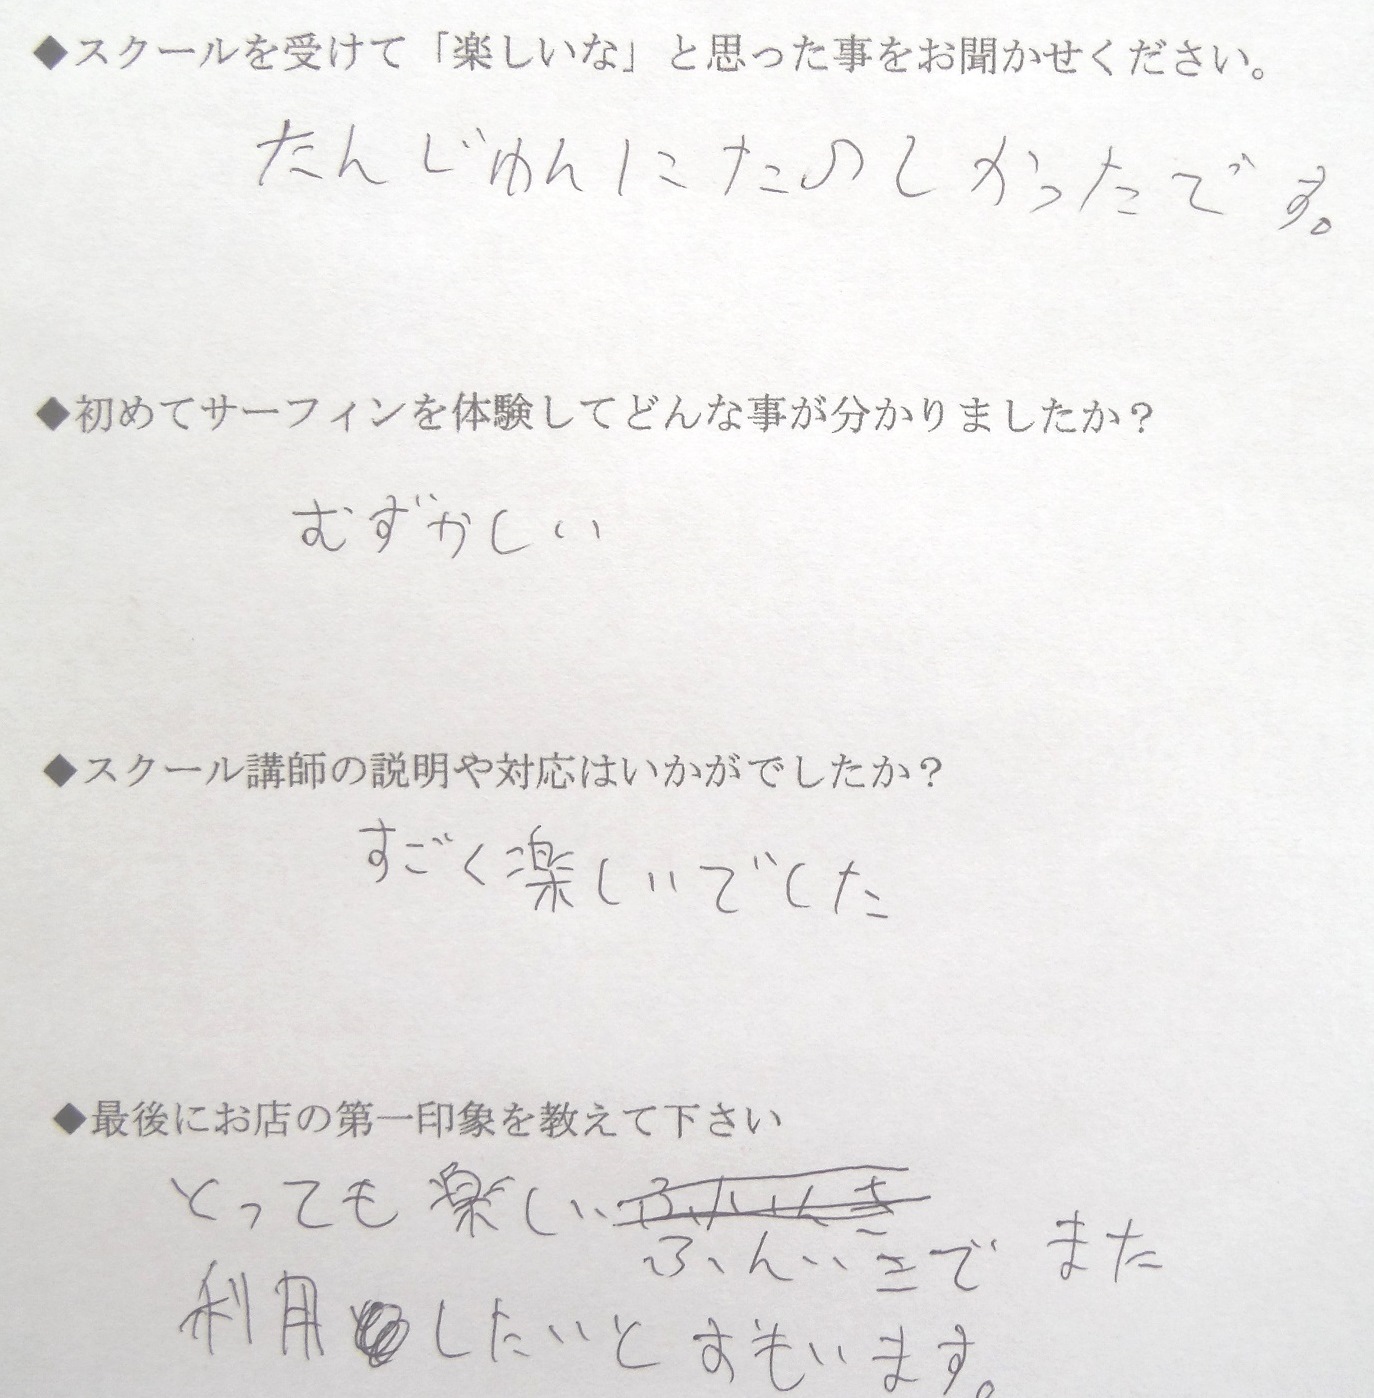 ◆スクールを受けて「楽しいな」と思った事をお聞かせください。
たんじゅんにたのしかったです。
◆初めてサーフィンを体験してどんな事が分かりましたか？
むずかしい
◆スクール講師の説明や対応はいかがでしたか？
すごく楽しいでした
◆最後にお店の第一印象を教えて下さい
とっても楽しい
ふんいきで また
利用したいとおもいます。